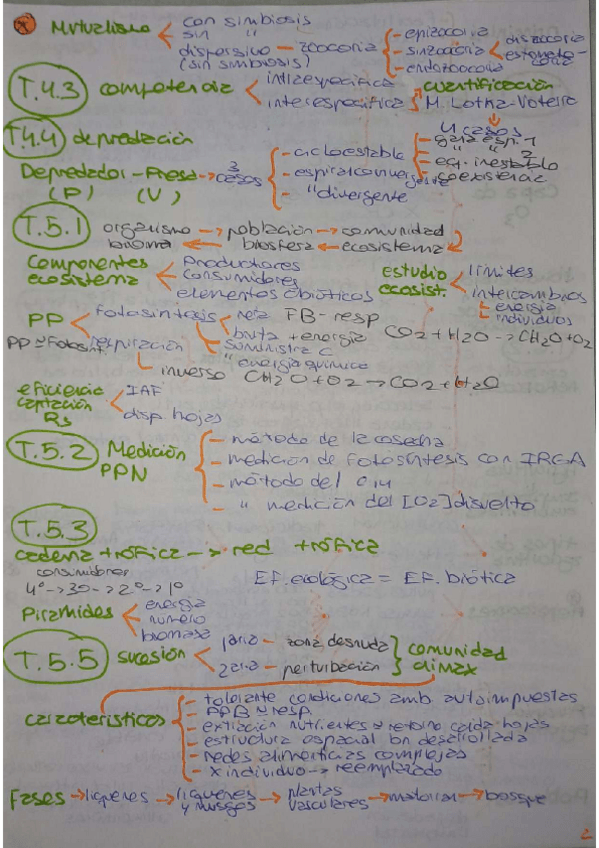 * Mutualismo
con simbiosis
sin "
dispersivo — zoocoria
(sin simbiosis)
- epizocoria
- sinzoocoria
- endozoocoria
diszoocoria
T.4.3 competencia
intraespecífica
interespecífica
cuantificación
M. Lotka-Voterra
4 casos
- gana esp. 1
- " " 2
- eq. inestable
- coexistencia
T.4.4 depredación
Depredador - Presa → 3 casos
(P) (V)
- ciclo estable
- espiral convergente
- " divergente
T.5.1 organismo → población → comunidad
bioma ← biosfera ← ecosistema
componentes ecosistema
Productores
Consumidores
elementos abióticos
estudio ecosist.
límites
intercambios
- energía
- individuos
PP
fotosíntesis
respiración
PP ≃ Fotosínt.
neta PB - resp
bruta + energía
suministra C
" energía química
CO2 + H2O → CH2O + O2
inverso CH2O + O2 → CO2 + H2O
eficiencia captación Rs
IAF
disp. hojas
T.5.2 Medición PPN
- método de la cosecha
- medición de fotosíntesis con IRGA
- método del C14
- " medición del [O2] disuelto
T.5.3
cadena trófica → red trófica
consumidores
4º → 3º → 2º → 1º
EF. ecológica = EF. biótica
Pirámides
energía
número
biomasa
T.5.5 sucesión
1aria - zona desnuda
2aria - perturbación
comunidad climax
características
- tolerante condiciones amb autoimpuestas
- PPB ≃ resp
- extracción nutrientes ≃ retorno caída hojas
- estructura espacial bn desarrollada
- redes alimenticias complejas
- x individuo → reemplazado
Fases → líquenes → líquenes y musgos → plantas vasculares → matorral → bosque
2